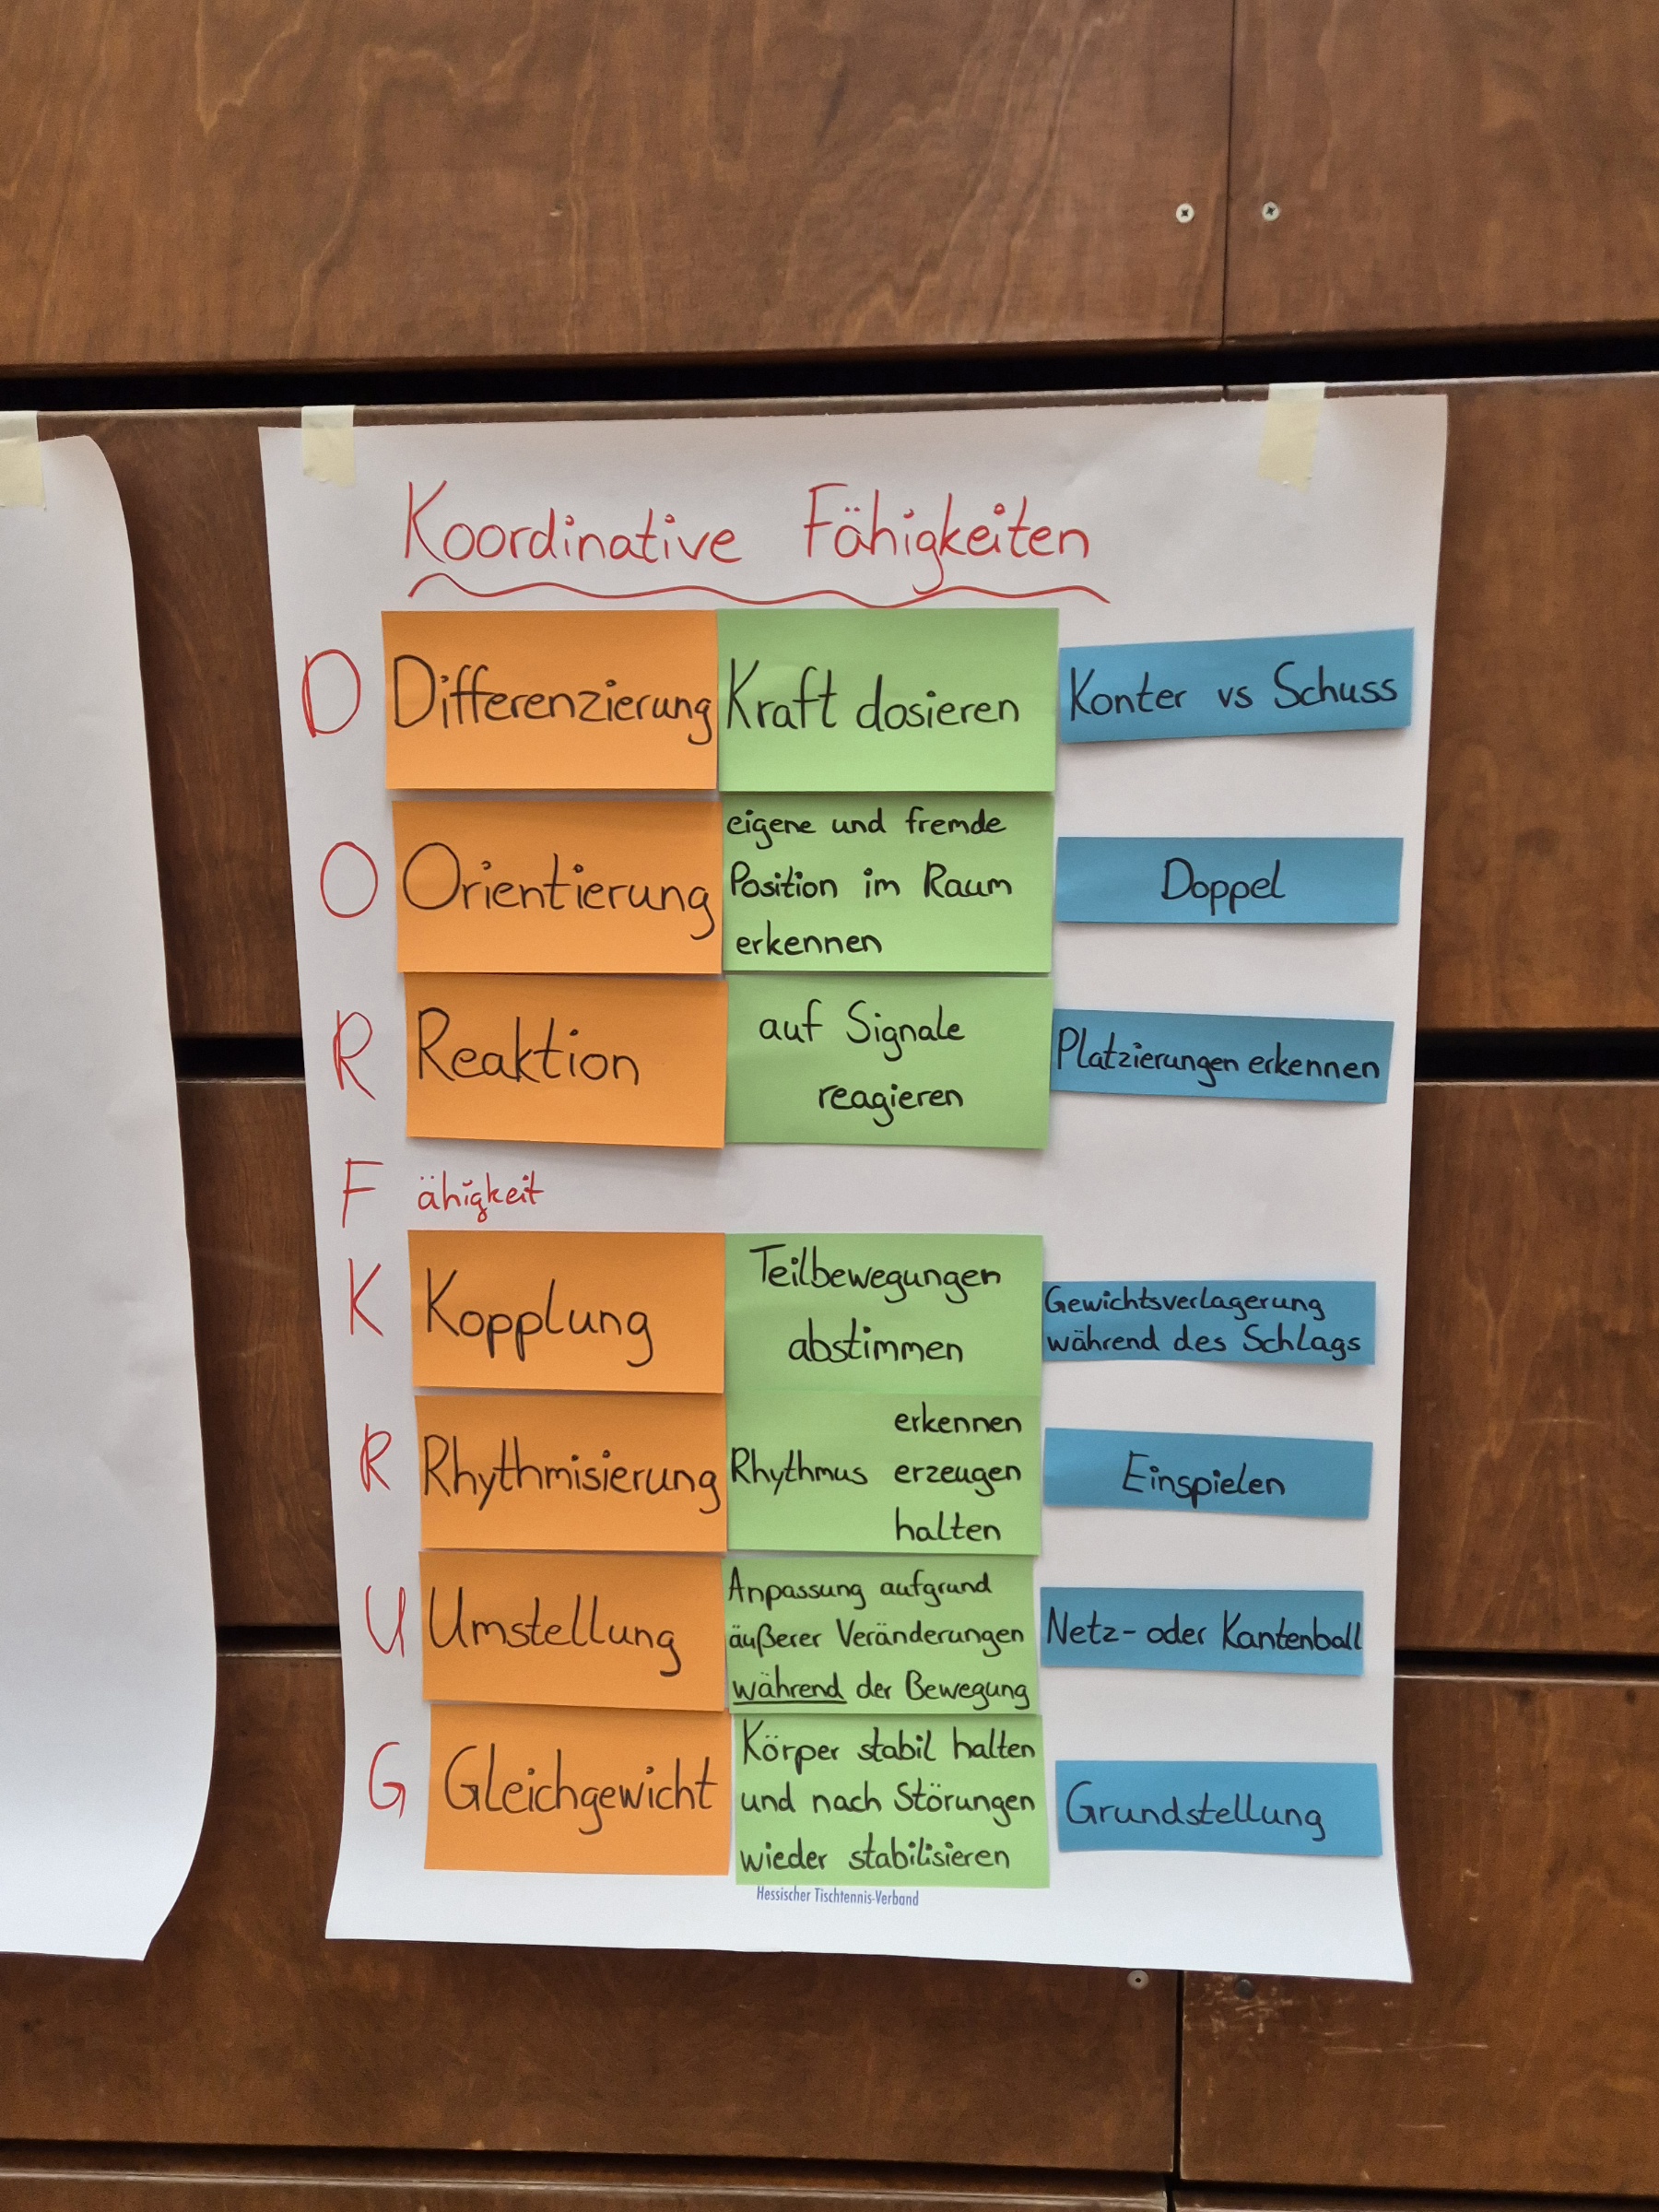 Koordinative Fähigkeiten
D Differenzierung Kraft dosieren Konter vs Schuss
O Orientierung eigene und fremde
Position im Raum
erkennen
Doppel
R Reaktion auf Signale
reagieren
Platzierungen erkennen
F ähigkeit
K Kopplung Teilbewegungen
abstimmen
Gewichtsverlagerung
während des Schlags
R Rhythmisierung erkennen
Rhythmus erzeugen
halten
Einspielen
U Umstellung Anpassung aufgrund
äußerer Veränderungen
während der Bewegung
Netz- oder Kantenball
G Gleichgewicht Körper stabil halten
und nach Störungen
wieder stabilisieren
Grundstellung
Hessischer Tischtennis-Verband